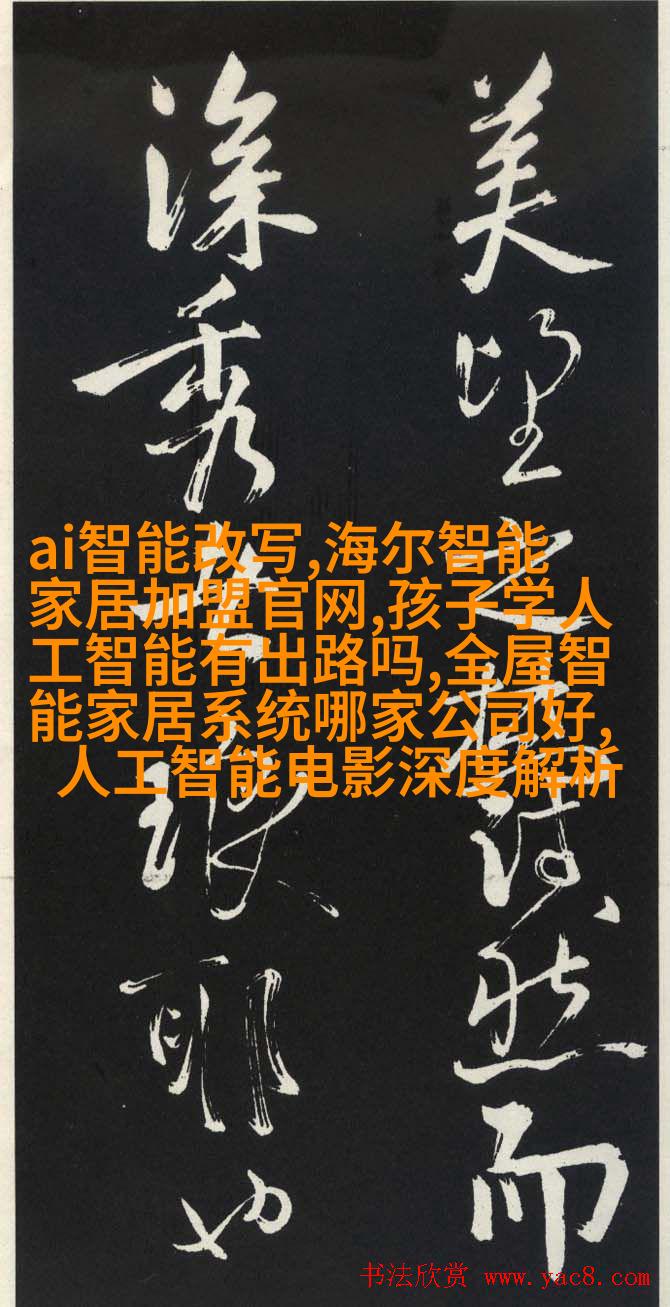 美望之蔚然而
深秀者琅耶也
ai智能改写,海尔智能
家居加盟官网,孩子学人
工智能有出路吗,全屋智
能家居系统哪家公司好,
人工智能电影深度解析
书法欣赏 www.yac8.com